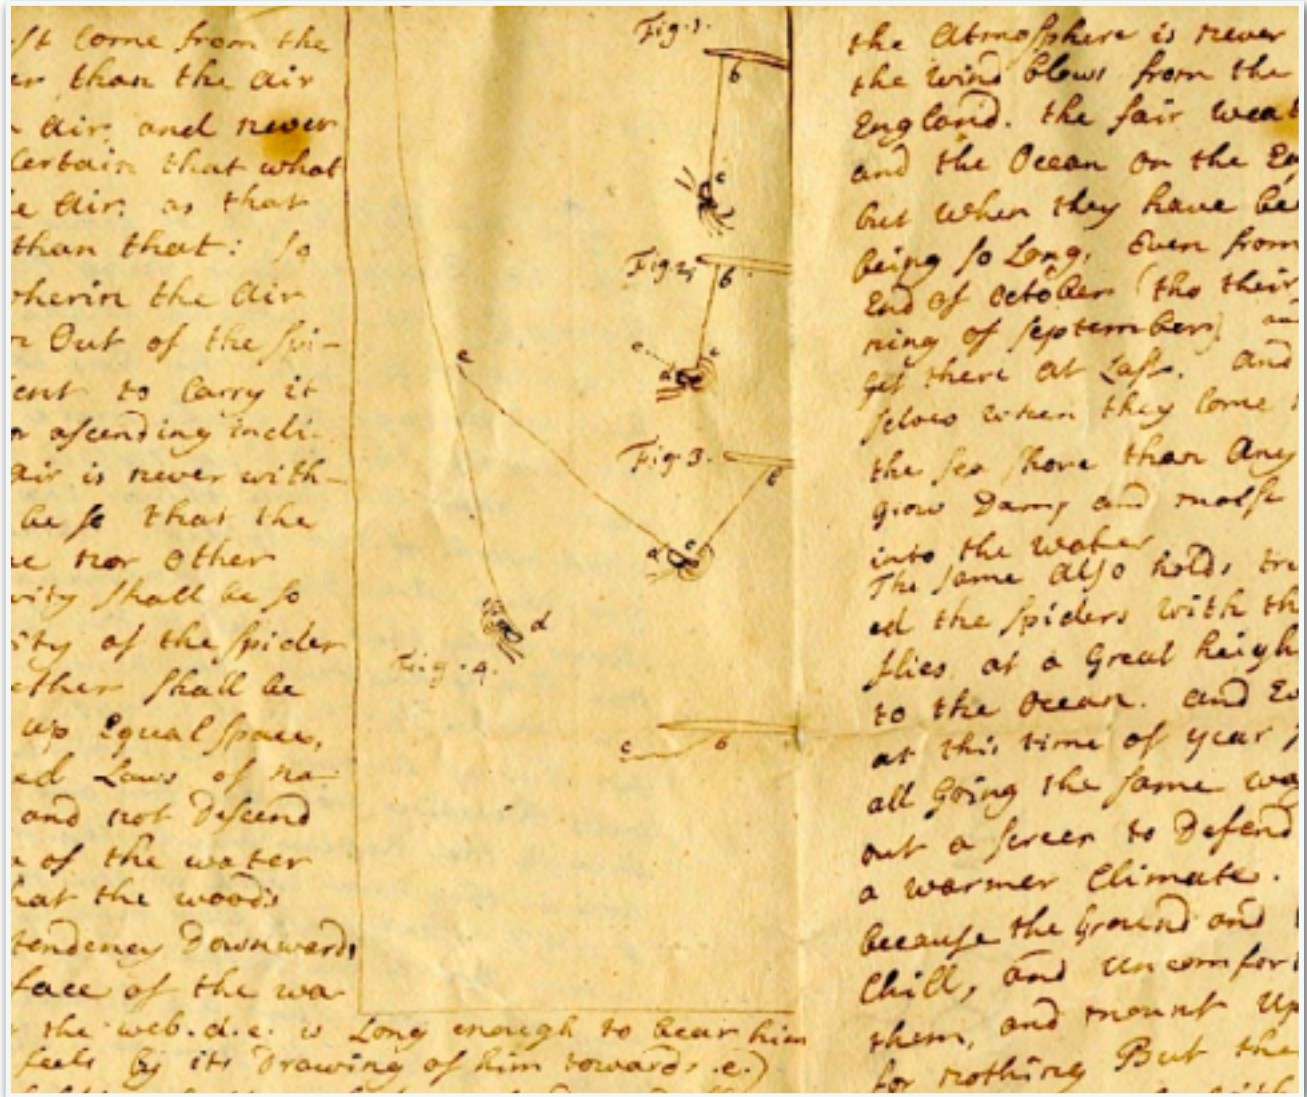 st Come from the
er than the air
air, and never
Certain that what
e air, as that
than that: so
wherin the Air
n Out of the spi-
ent to Carry it
or ascending incli-
air is never with-
be so that the
ne nor Other
vity shall be so
ity of the spider
ether shall be
up Equal space,
ed Laws of na
and not Descend
n of the water
hat the woods
tendency Downwards
face of the wa
the web. d. e. is Long enough to bear him
feels by its Drawing of him towards .e.)
Fig. 1.
b
c
Fig. 2.
b
e
d
c
Fig. 3.
e
d
c
e
d
Fig. 4.
c
b
the Atmosphere is never
the wind blows from the
England. the fair weat
and the Ocean on the Ea
but when they have be
being so Long, Even from
End of October (tho their
ning of september) an
get there at Last. and
selves when they Come
the sea shore than Any
grow Damp and moist
into the water
The same also holds tre
ed the spiders with th
flies, at a Great heigh
to the Ocean. and Ev
at this time of year
all Going the same way
out a screen to Defend
a warmer Climate.
because the Ground and
Chill, and Uncomfort
them, and mount Up
for nothing But the